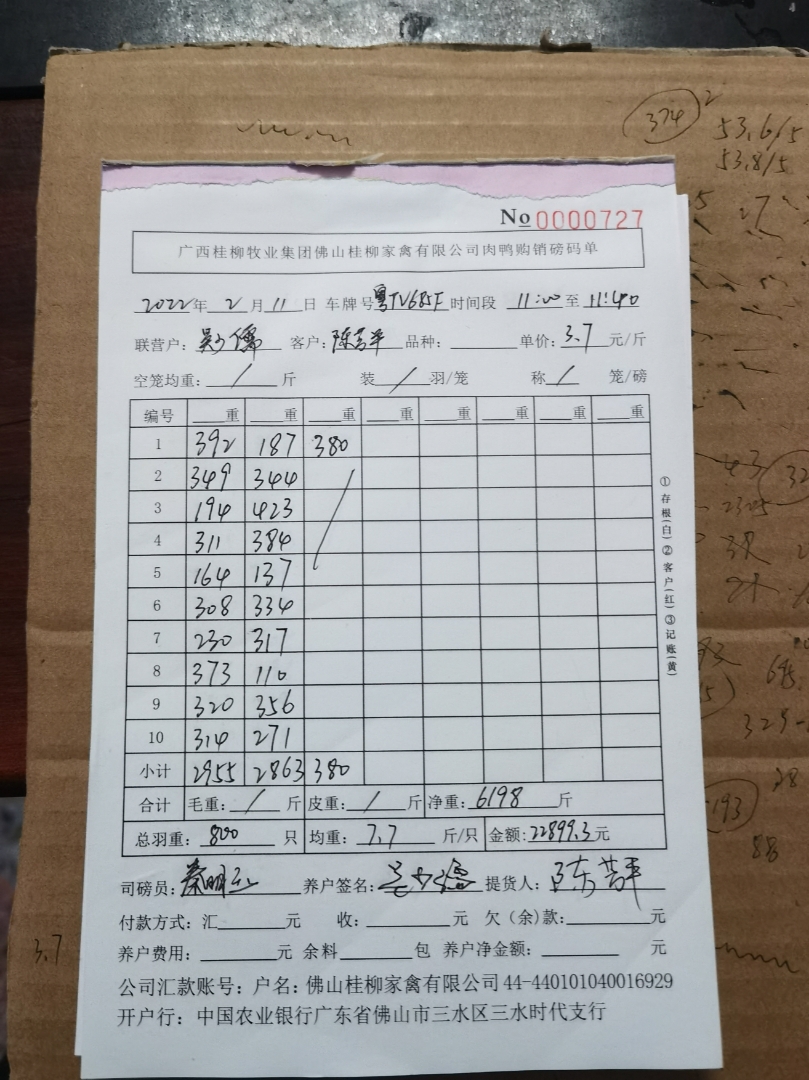 No 0000727
广西桂柳牧业集团佛山桂柳家禽有限公司肉鸭购销磅码单
2022年 2 月 11 日 车牌号粤TV685F 时间段 11:00 至 11:40
联营户: 客户: 品种: 单价: 3.7 元/斤
空笼均重: / 斤 装 / 羽/笼 称 / 笼/磅
编号 重 重 重 重 重 重 重 重
1 392 187 380
2 349 344
3 194 423
4 311 384
5 164 137
6 308 334
7 230 317
8 373 110
9 320 356
10 314 271
小计 2955 2863 380
合计 毛重: / 斤 皮重: / 斤 净重: 6198 斤
总羽重: 800 只 均重: 7.7 斤/只 金额: 22899.3元
司磅员: 养户签名: 提货人:
付款方式: 汇 元 收: 元 欠(余)款: 元
养户费用: 元 余料 包 养户净金额: 元
公司汇款账号: 户名: 佛山桂柳家禽有限公司 44-440101040016929
开户行: 中国农业银行广东省佛山市三水区三水时代支行
①存根(白)②客户(红)③记账(黄)
374
53.6/5
53.8/5
3.7